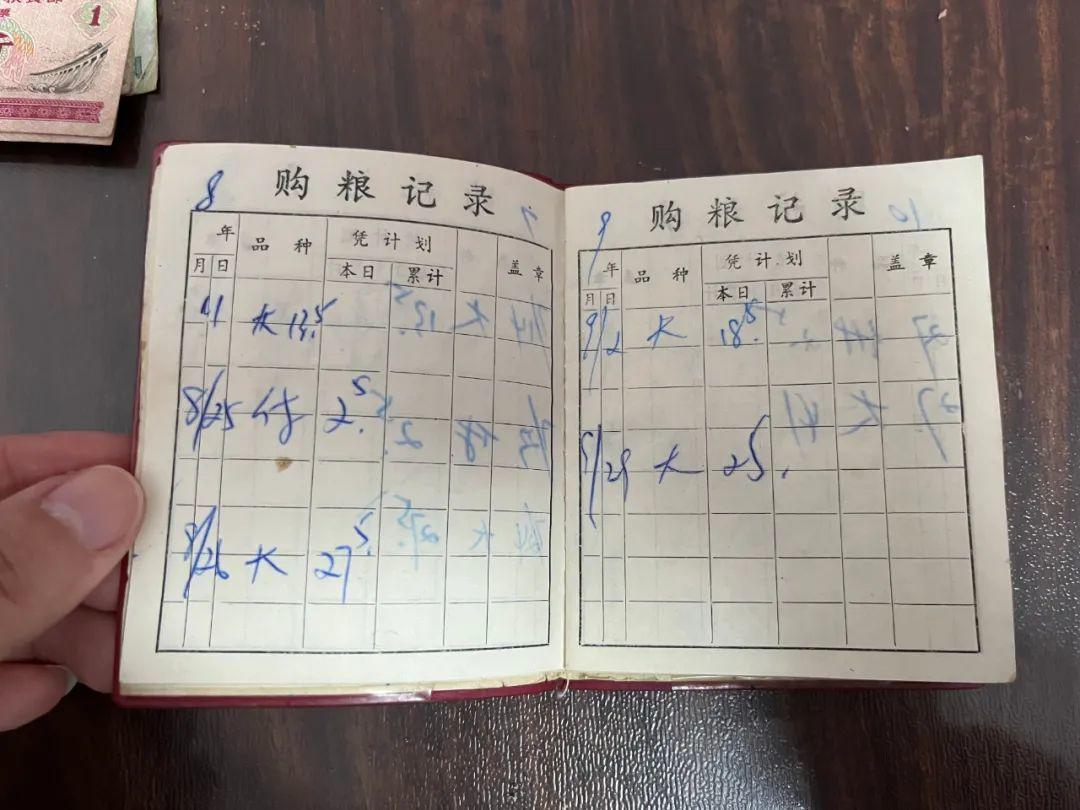 1
8
购粮记录
年 品种 凭计划 盖章
月 日 本日 累计
大 13.5
8/25 2.5
8/26 大 27.5
9
购粮记录
10
年 品种 凭计划 盖章
月 日 本日 累计
9/2 大 18.5
9/29 大 25.